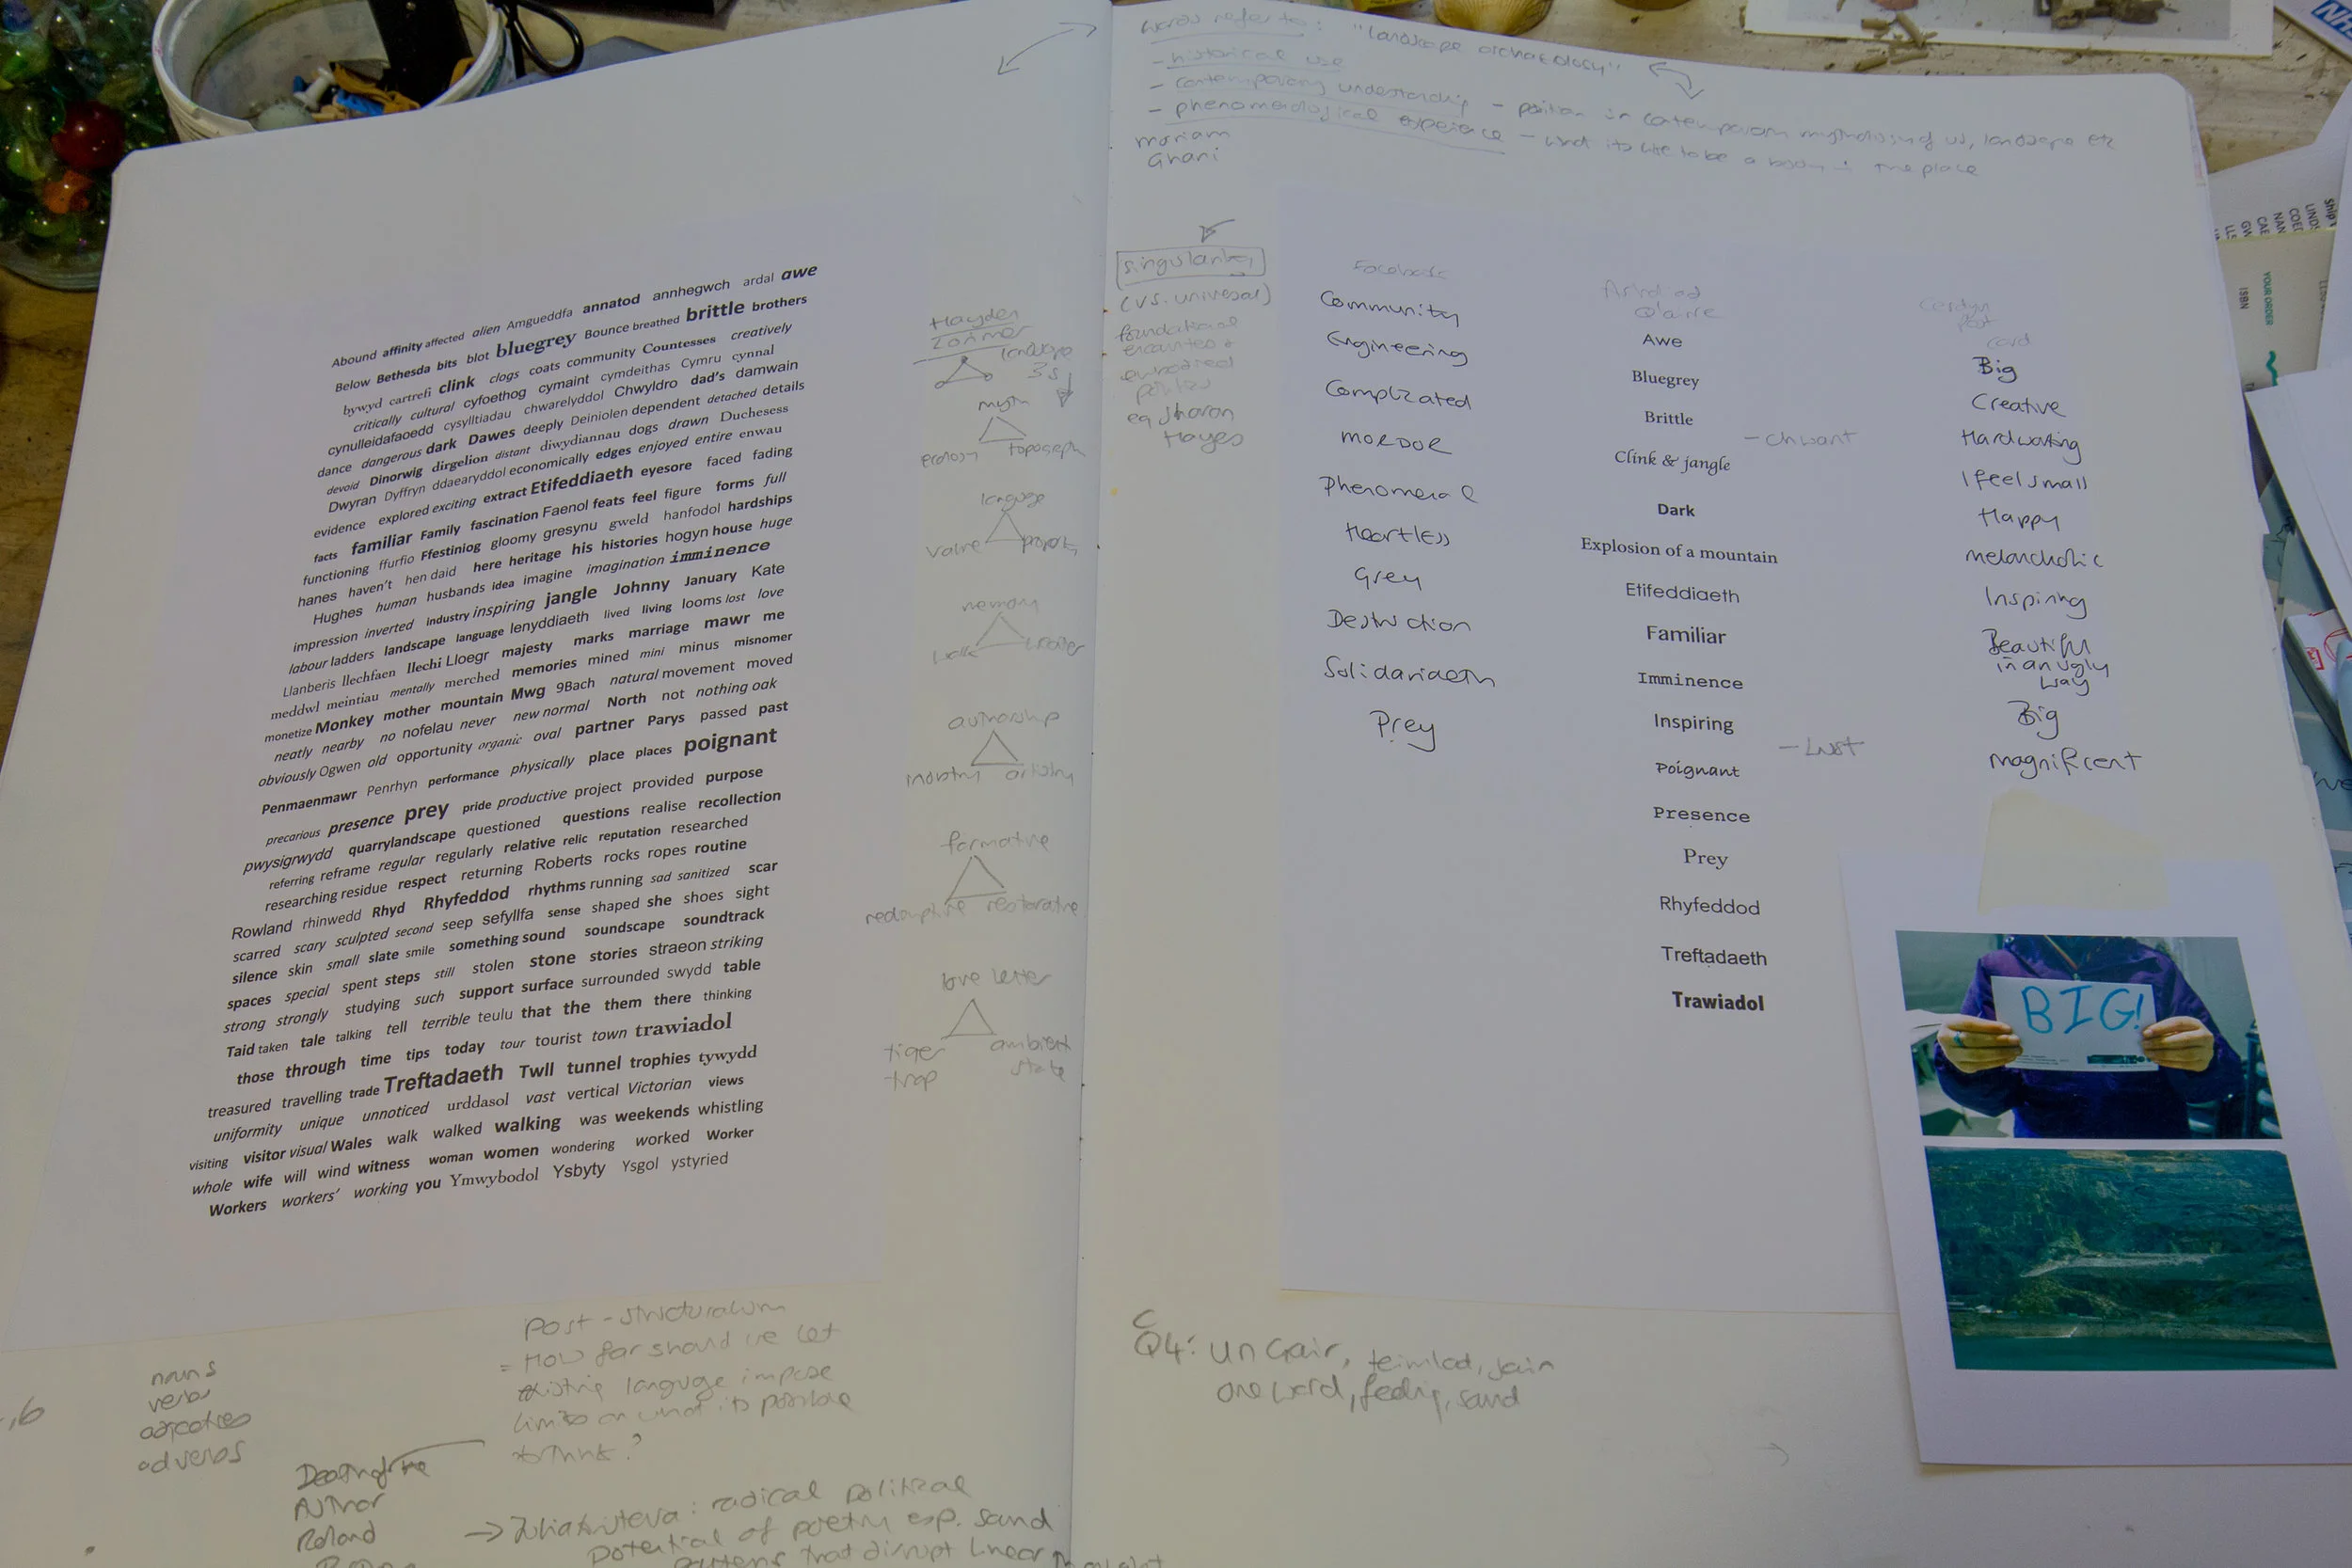 Abound affinity affected alien Amgueddfa annatod annhegwch ardal awe
Below Bethesda bits blot bluegrey Bounce breathed brittle brothers
bywyd cartrefi clink clogs coats community Countesses creatively
critically cultural cyfoethog cymaint cymdeithas Cymru cynnal
cynulleidafaoedd cysylltiadau chwarelyddol Chwyldro dad's damwain
dance dangerous dark Dawes deeply Deiniolen dependent detached details
devoid Dinorwig dirgelion distant diwydiannau dogs drawn Duchesess
Dwyran Dyffryn ddaearyddol economically edges enjoyed entire enwau
evidence explored exciting extract Etifeddiaeth eyesore faced fading
facts familiar Family fascination Faenol feats feel figure forms full
functioning ffurfio Ffestiniog gloomy gresynu gweld hanfodol hardships
hanes haven't hen daid here heritage his histories hogyn house huge
Hughes human husbands idea imagine imagination imminence
impression inverted industry inspiring jangle Johnny January Kate
labour ladders landscape language lenyddiaeth lived living looms lost love
Llanberis llechfaen llechi Lloegr majesty marks marriage mawr me
meddwl meintiau mentally merched memories mined mini minus misnomer
monetize Monkey mother mountain Mwg 9Bach natural movement moved
neatly nearby no nofelau never new normal North not nothing oak
obviously Ogwen old opportunity organic oval partner Parys passed past
Penmaenmawr Penrhyn performance physically place places poignant
precarious presence prey pride productive project provided purpose
pwysigrwydd quarrylandscape questioned questions realise recollection
referring reframe regular regularly relative relic reputation researched
researching residue respect returning Roberts rocks ropes routine
Rowland rhinwedd Rhyd Rhyfeddod rhythms running sad sanitized scar
scarred scary sculpted second seep sefyllfa sense shaped she shoes sight
silence skin small slate smile something sound soundscape soundtrack
spaces special spent steps still stolen stone stories straeon striking
strong strongly studying such support surface surrounded swydd table
Taid taken tale talking tell terrible teulu that the them there thinking
those through time tips today tour tourist town trawiadol
treasured travelling trade Treftadaeth Twll tunnel trophies tywydd
uniformity unique unnoticed urddasol vast vertical Victorian views
visiting visitor visual Wales walk walked walking was weekends whistling
whole wife will wind witness woman women wondering worked Worker
Workers workers' working you Ymwybodol Ysbyty Ysgol ystyried
Hayden
language
myth
ecology topography
language
value
memory
walk
authorship
artistry
formative
redemptive restorative
love letter
tiger ambient
trap state
nouns
verbs
adjectives
adverbs
Post-structuralism
= How far should we let
existing language impose
limits on what it is possible
to think?
Death of the
Author
Roland
→ Julia Kristeva: radical political
potential of poetry esp. sand
patterns that disrupt linear
words refer to: "landscape archaeology"
- historical use
- contemporary understanding - position in contemporary mythologising of us, landscape etc
- phenomenological experience - what its like to be a body in the place
mariam
Ghani
singularity
(vs. universal)
foundational
eg Sharon
Hayes
Facebook
Community
Engineering
Complicated
MORDOR
Phenomenal
Heartless
Grey
Destruction
Solidariaeth
Prey
Awe
Bluegrey
Brittle
- chwant
Clink & jangle
Dark
Explosion of a mountain
Etifeddiaeth
Familiar
Imminence
Inspiring
- Lust
Poignant
Presence
Prey
Rhyfeddod
Treftadaeth
Trawiadol
Cerdyn
post
card
Big
Creative
Hardworking
I feel small
Happy
melancholic
Inspiring
Beautiful
in an ugly
way
Big
magnificent
BIG!
Q4: un Gair, teimlad, sain
one word, feeling, sand
YOUR ORDER
ISBN